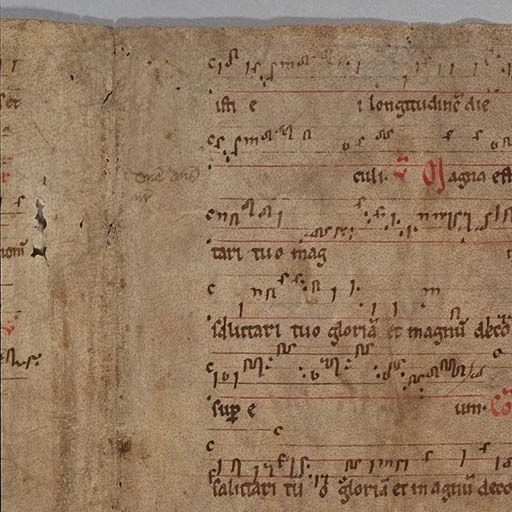 isti e i longitudinē die
culi. v̄ Magna est
tari tuo mag
salutari tuo gloriā et magnū deco
sup e um. Co
salutari tu o gloriā et magnū deco